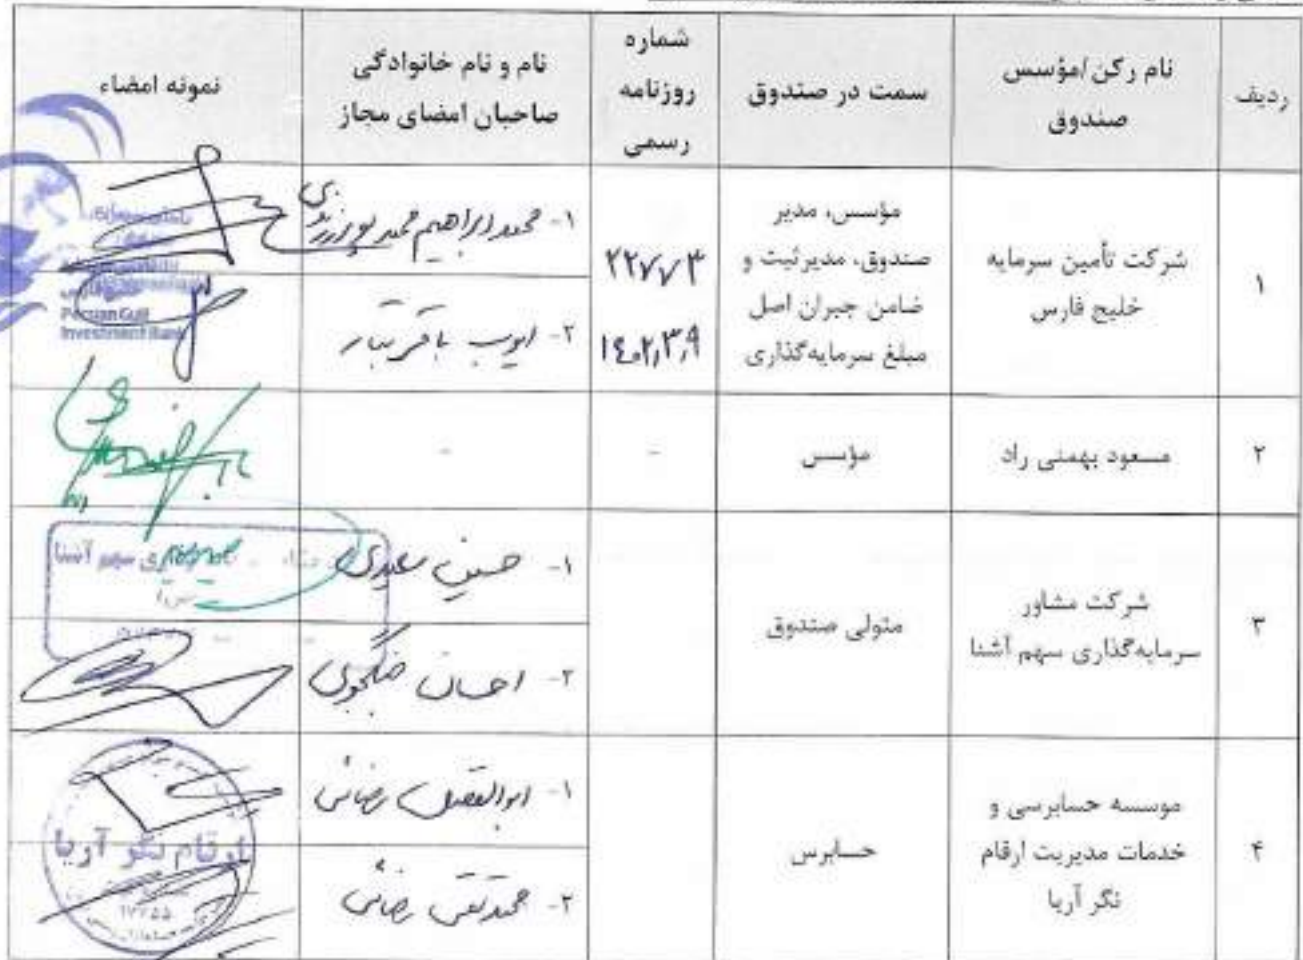 ردیف
نام رکن/مؤسس
صندوق
سمت در صندوق
شماره
روزنامه
رسمی
نام و نام خانوادگی
صاحبان امضای مجاز
نمونه امضاء
۱
شرکت تأمین سرمایه
خلیج فارس
مؤسس، مدیر
صندوق، مدیرثبت و
ضامن جبران اصل
مبلغ سرمایه‌گذاری
۲۲۷۷۳
۱۴۰۲,۳,۹
۱- محمد ابراهیم محمد پورزرندی
۲- ایوب باقرتبار
Persian Gulf
Investment Bank
۲
مسعود بهمنی راد
مؤسس
-
-
۳
شرکت مشاور
سرمایه‌گذاری سهم آشنا
متولی صندوق
۱- حسین سعیدی
۲- احسان
سهم آشنا
۴
موسسه حسابرسی و
خدمات مدیریت ارقام
نگر آریا
حسابرس
۱- ابوالفضل رضائی
۲- محمدتقی رضائی
ارقام نگر آریا
۱۷۲۵۵